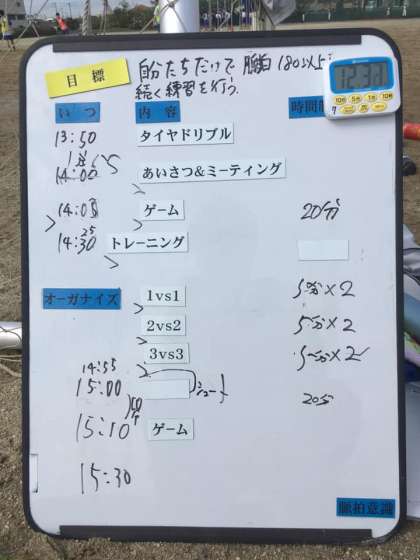 目標 自分たちだけで 脈拍180以上
続く練習を行う。
12:30
いつ 内容 時間
13:50 タイヤドリブル
14:00 あいさつ&ミーティング
14:05 ゲーム 20分
14:30 25 トレーニング
オーガナイズ 1vs1 5分×2
2vs2 5分×2
3vs3 5分×2
14:55
15:00 シュート 20分
15:10 ゲーム
15:30
脈拍意識